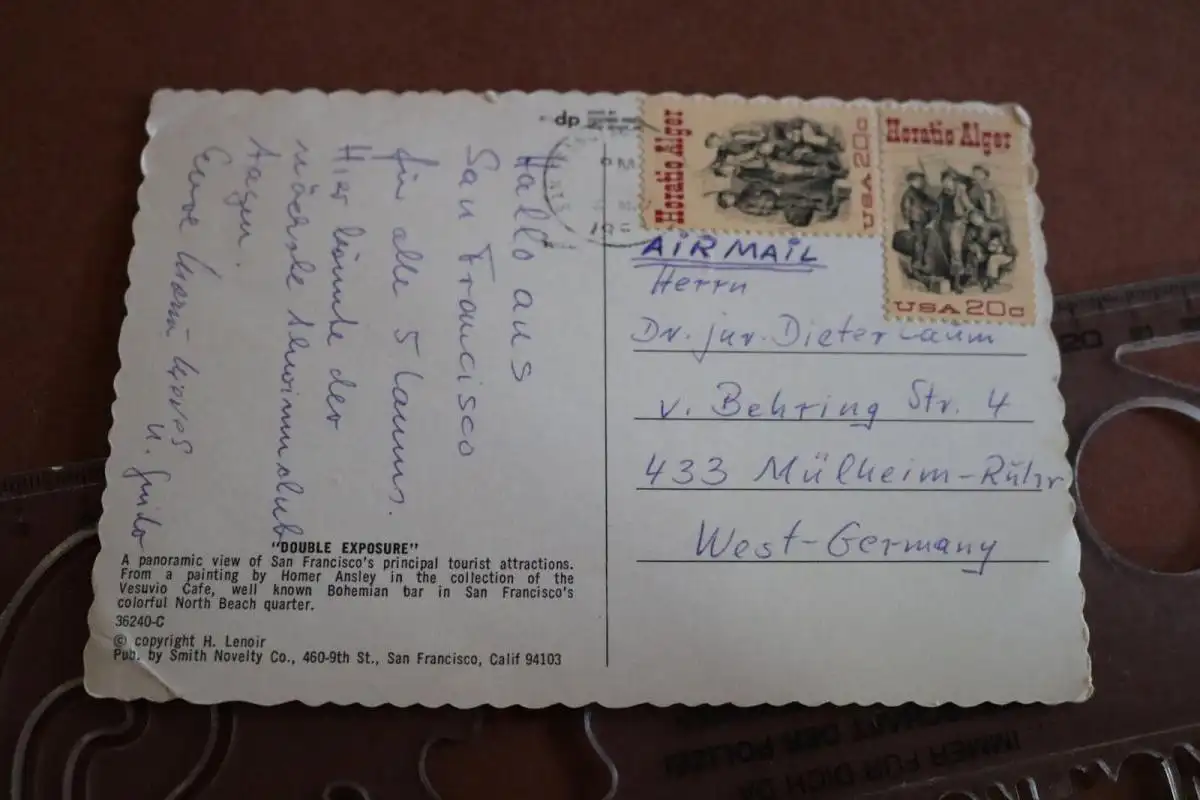 Hallo aus
San Francisco
für alle 5 Laums.
Hier könnte der
nächste Schwimmclub
tagen.
Eure
u. Guido
"DOUBLE EXPOSURE"
A panoramic view of San Francisco's principal tourist attractions.
From a painting by Homer Ansley in the collection of the
Vesuvio Cafe, well known Bohemian bar in San Francisco's
colorful North Beach quarter.
36240-C
© copyright H. Lenoir
Pub. by Smith Novelty Co., 460-9th St., San Francisco, Calif 94103
Horatio Alger
USA 20c
Horatio Alger
USA 20c
AIR MAIL
Herrn
Dr. jur. Dieter Laum
v. Behring Str. 4
433 Mülheim-Ruhr
West-Germany
IMMER FÜR DICH DA